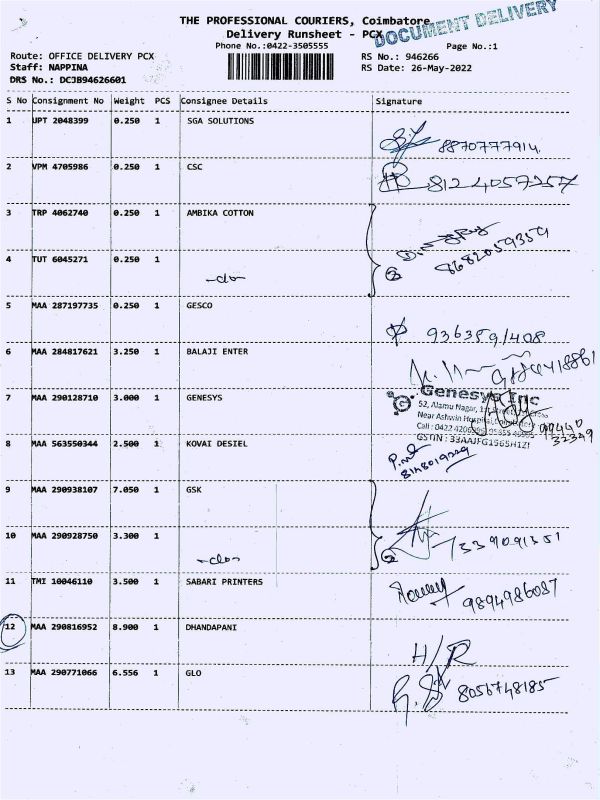 THE PROFESSIONAL COURIERS, Coimbatore
DOCUMENT DELIVERY
Delivery Runsheet - PCX
Phone No.:0422-3505555
Page No.:1
Route: OFFICE DELIVERY PCX
RS No.: 946266
Staff: NAPPINA
RS Date: 26-May-2022
DRS No.: DCJB94626601
S No Consignment No Weight PCS Consignee Details Signature
1 UPT 2048399 0.250 1 SGA SOLUTIONS
8870777914.
2 VPM 4705986 0.250 1 CSC
8124057257
3 TRP 4062740 0.250 1 AMBIKA COTTON
8682059359
4 TUT 6045271 0.250 1
-do-
5 MAA 287197735 0.250 1 GESCO
6 MAA 284817621 3.250 1 BALAJI ENTER
7 MAA 290128710 3.000 1 GENESYS
Genesys Inc
52, Alamu Nagar,
Near Ashwin Hospital,
Call : 0422 4206
GSTIN : 33AAJFG1565H1ZI
99440
32349
8 MAA 563550344 2.500 1 KOVAI DESIEL
8148019229
9 MAA 290938107 7.050 1 GSK
10 MAA 290928750 3.300 1
-do-
7339091351
11 TMI 10046110 3.500 1 SABARI PRINTERS
9894986087
12 MAA 290816952 8.900 1 DHANDAPANI
H/R
13 MAA 290771066 6.556 1 GLO
8056748185